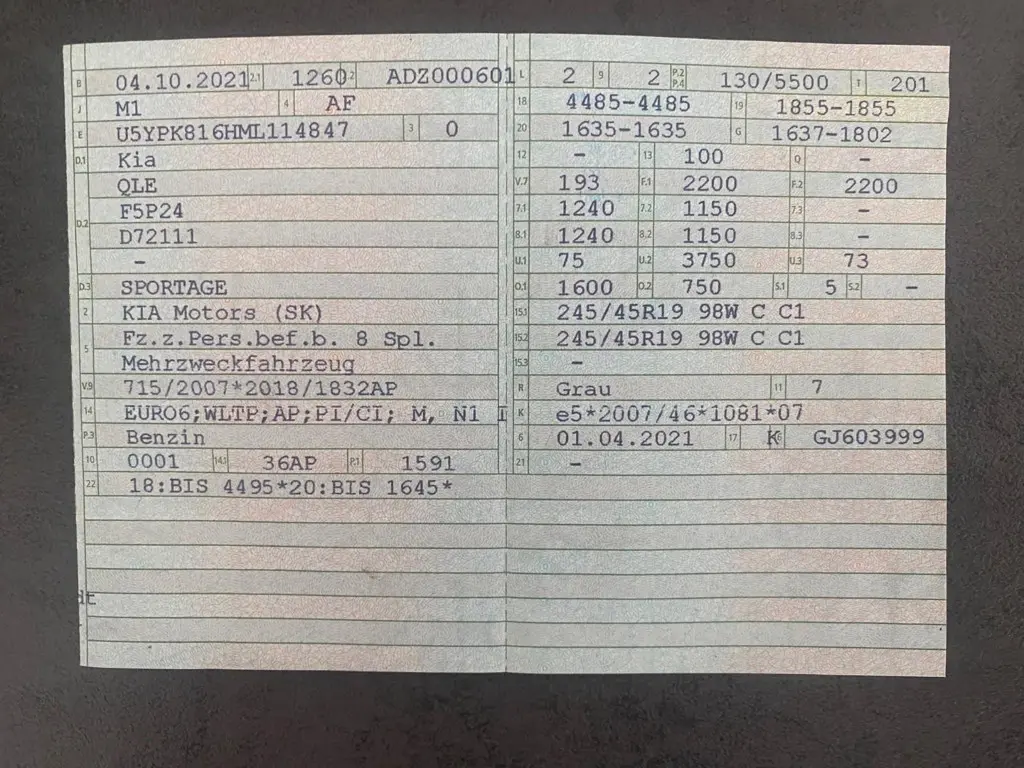 B 04.10.2021 2.1 1260 2.2 ADZ000601
J M1 4 AF
E U5YPK816HML114847 3 0
D.1 Kia
D.2 QLE
F5P24
D72111
–
D.3 SPORTAGE
2 KIA Motors (SK)
5 Fz.z.Pers.bef.b. 8 Spl.
Mehrzweckfahrzeug
V.9 715/2007*2018/1832AP
14 EURO6;WLTP;AP;PI/CI; M, N1 I
P.3 Benzin
10 0001 14.1 36AP P.1 1591
22 18:BIS 4495*20:BIS 1645*
dt
L 2 9 2 P.2 P.4 130/5500 T 201
18 4485-4485 19 1855-1855
20 1635-1635 G 1637-1802
12 – 13 100 Q –
V.7 193 F.1 2200 F.2 2200
7.1 1240 7.2 1150 7.3 –
8.1 1240 8.2 1150 8.3 –
U.1 75 U.2 3750 U.3 73
O.1 1600 O.2 750 S.1 5 S.2 –
15.1 245/45R19 98W C C1
15.2 245/45R19 98W C C1
15.3 –
R Grau 11 7
K e5*2007/46*1081*07
6 01.04.2021 17 K 16 GJ603999
21 –